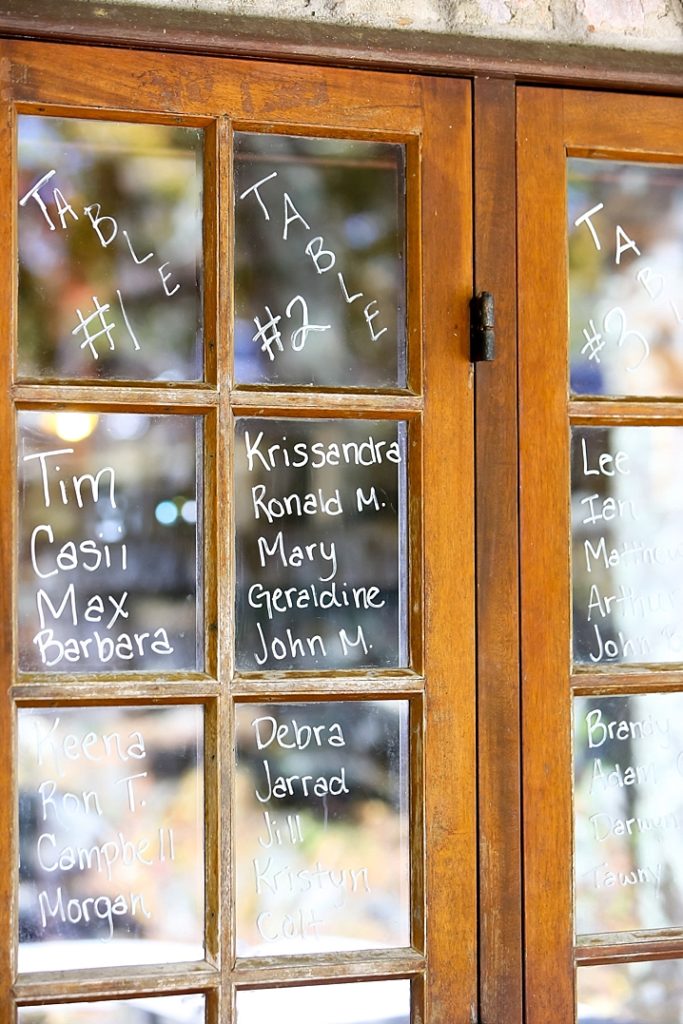 TABLE
#1
Tim
Casii
Max
Barbara
Keena
Ron T.
Campbell
Morgan
TABLE
#2
Krissandra
Ronald M.
Mary
Geraldine
John M.
Debra
Jarrad
Jill
Kristyn
Colt
TAB
#3
Lee
Ian
Matthew
Arthur
John
Brandy
Adam
Tawny